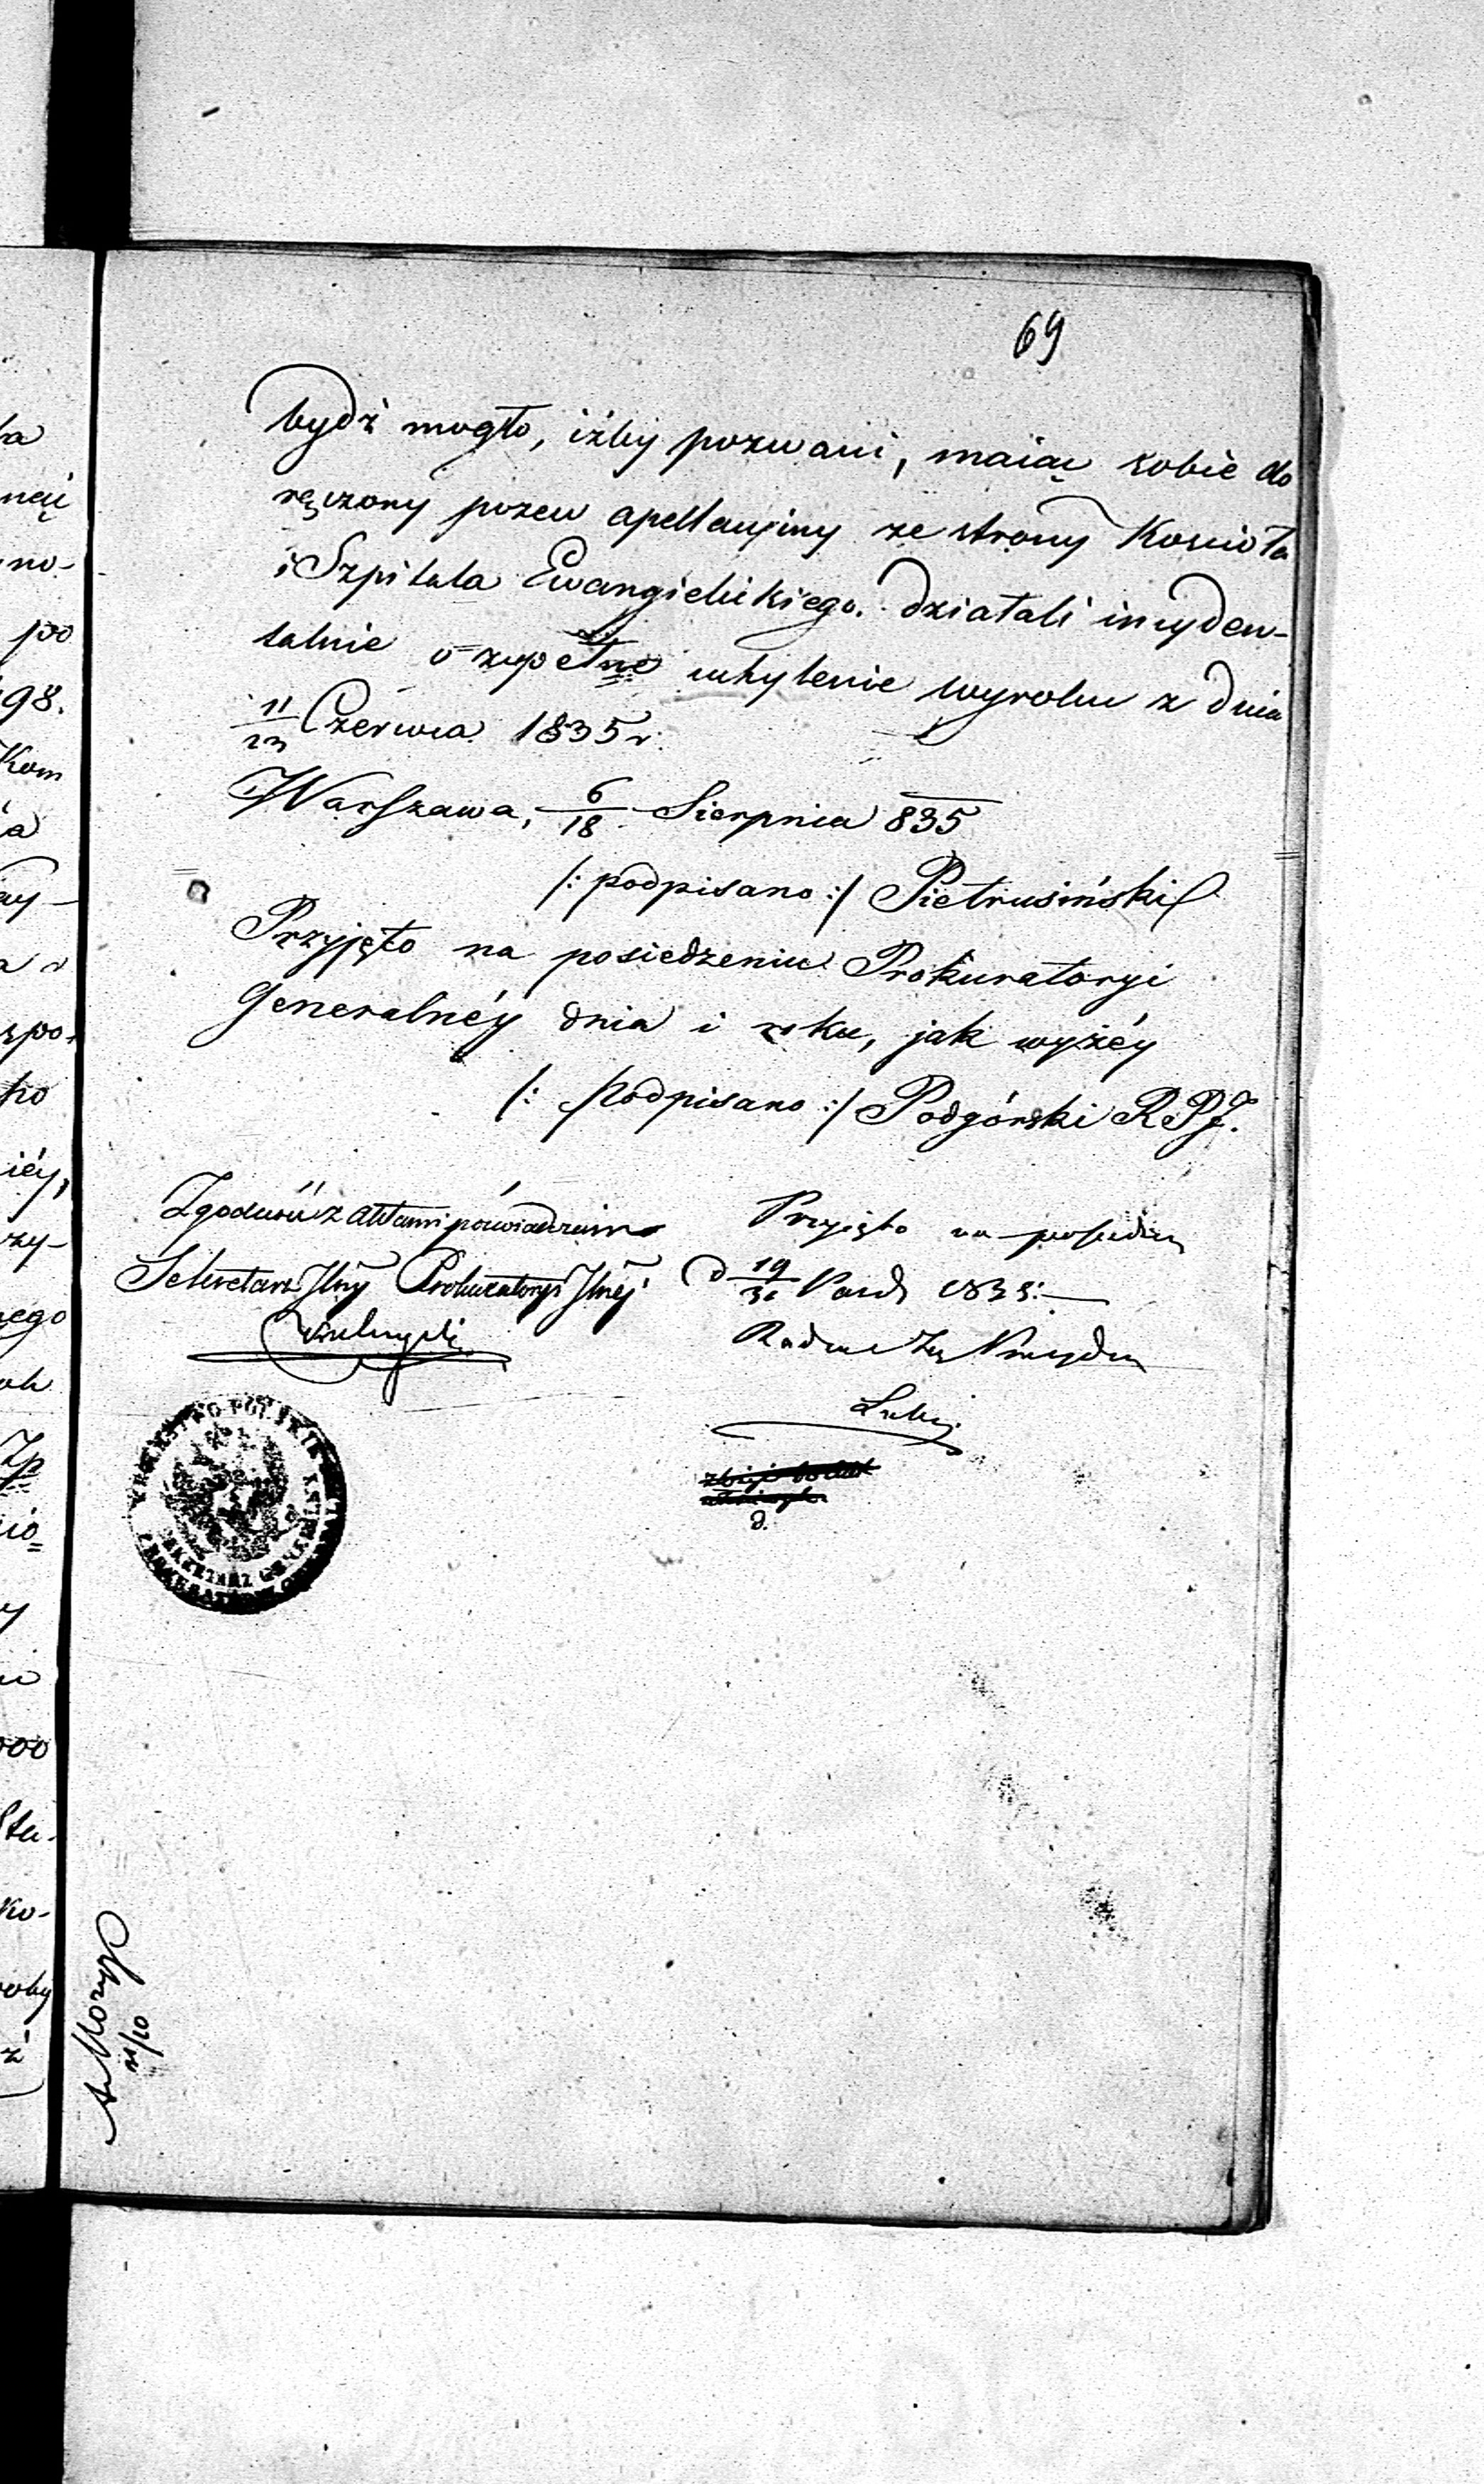 69
bydź mogło, iżby pozwani, maiąc sobie do
ręczony pozew apellacyiny ze strony Kościoła
i Szpitala Ewangielickiego. działali incyden-
talnie o zupełne uchylenie wyroku z dnia
11/23 Czerwca 1835 r.
Warszawa, 6/18 Sierpnia 835
/: podpisano :/ Pietrusiński
Przyjęto na posiedzeniu Prokuratoryi
Generalnéy dnia i roku, jak wyżéy
/: podpisano :/ Podgórski R.P.J.
Zgodność z aktami poświadczam
Sekretarz Jlny Prokuratoryi Jlnéj
Przyięto na posiedzeniu
d 19/31 Paźd 1835.
Radca
d.
21/10